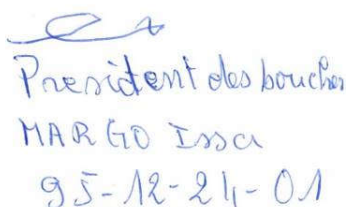 President des bouchers
MARGO Issa
95-12-24-01